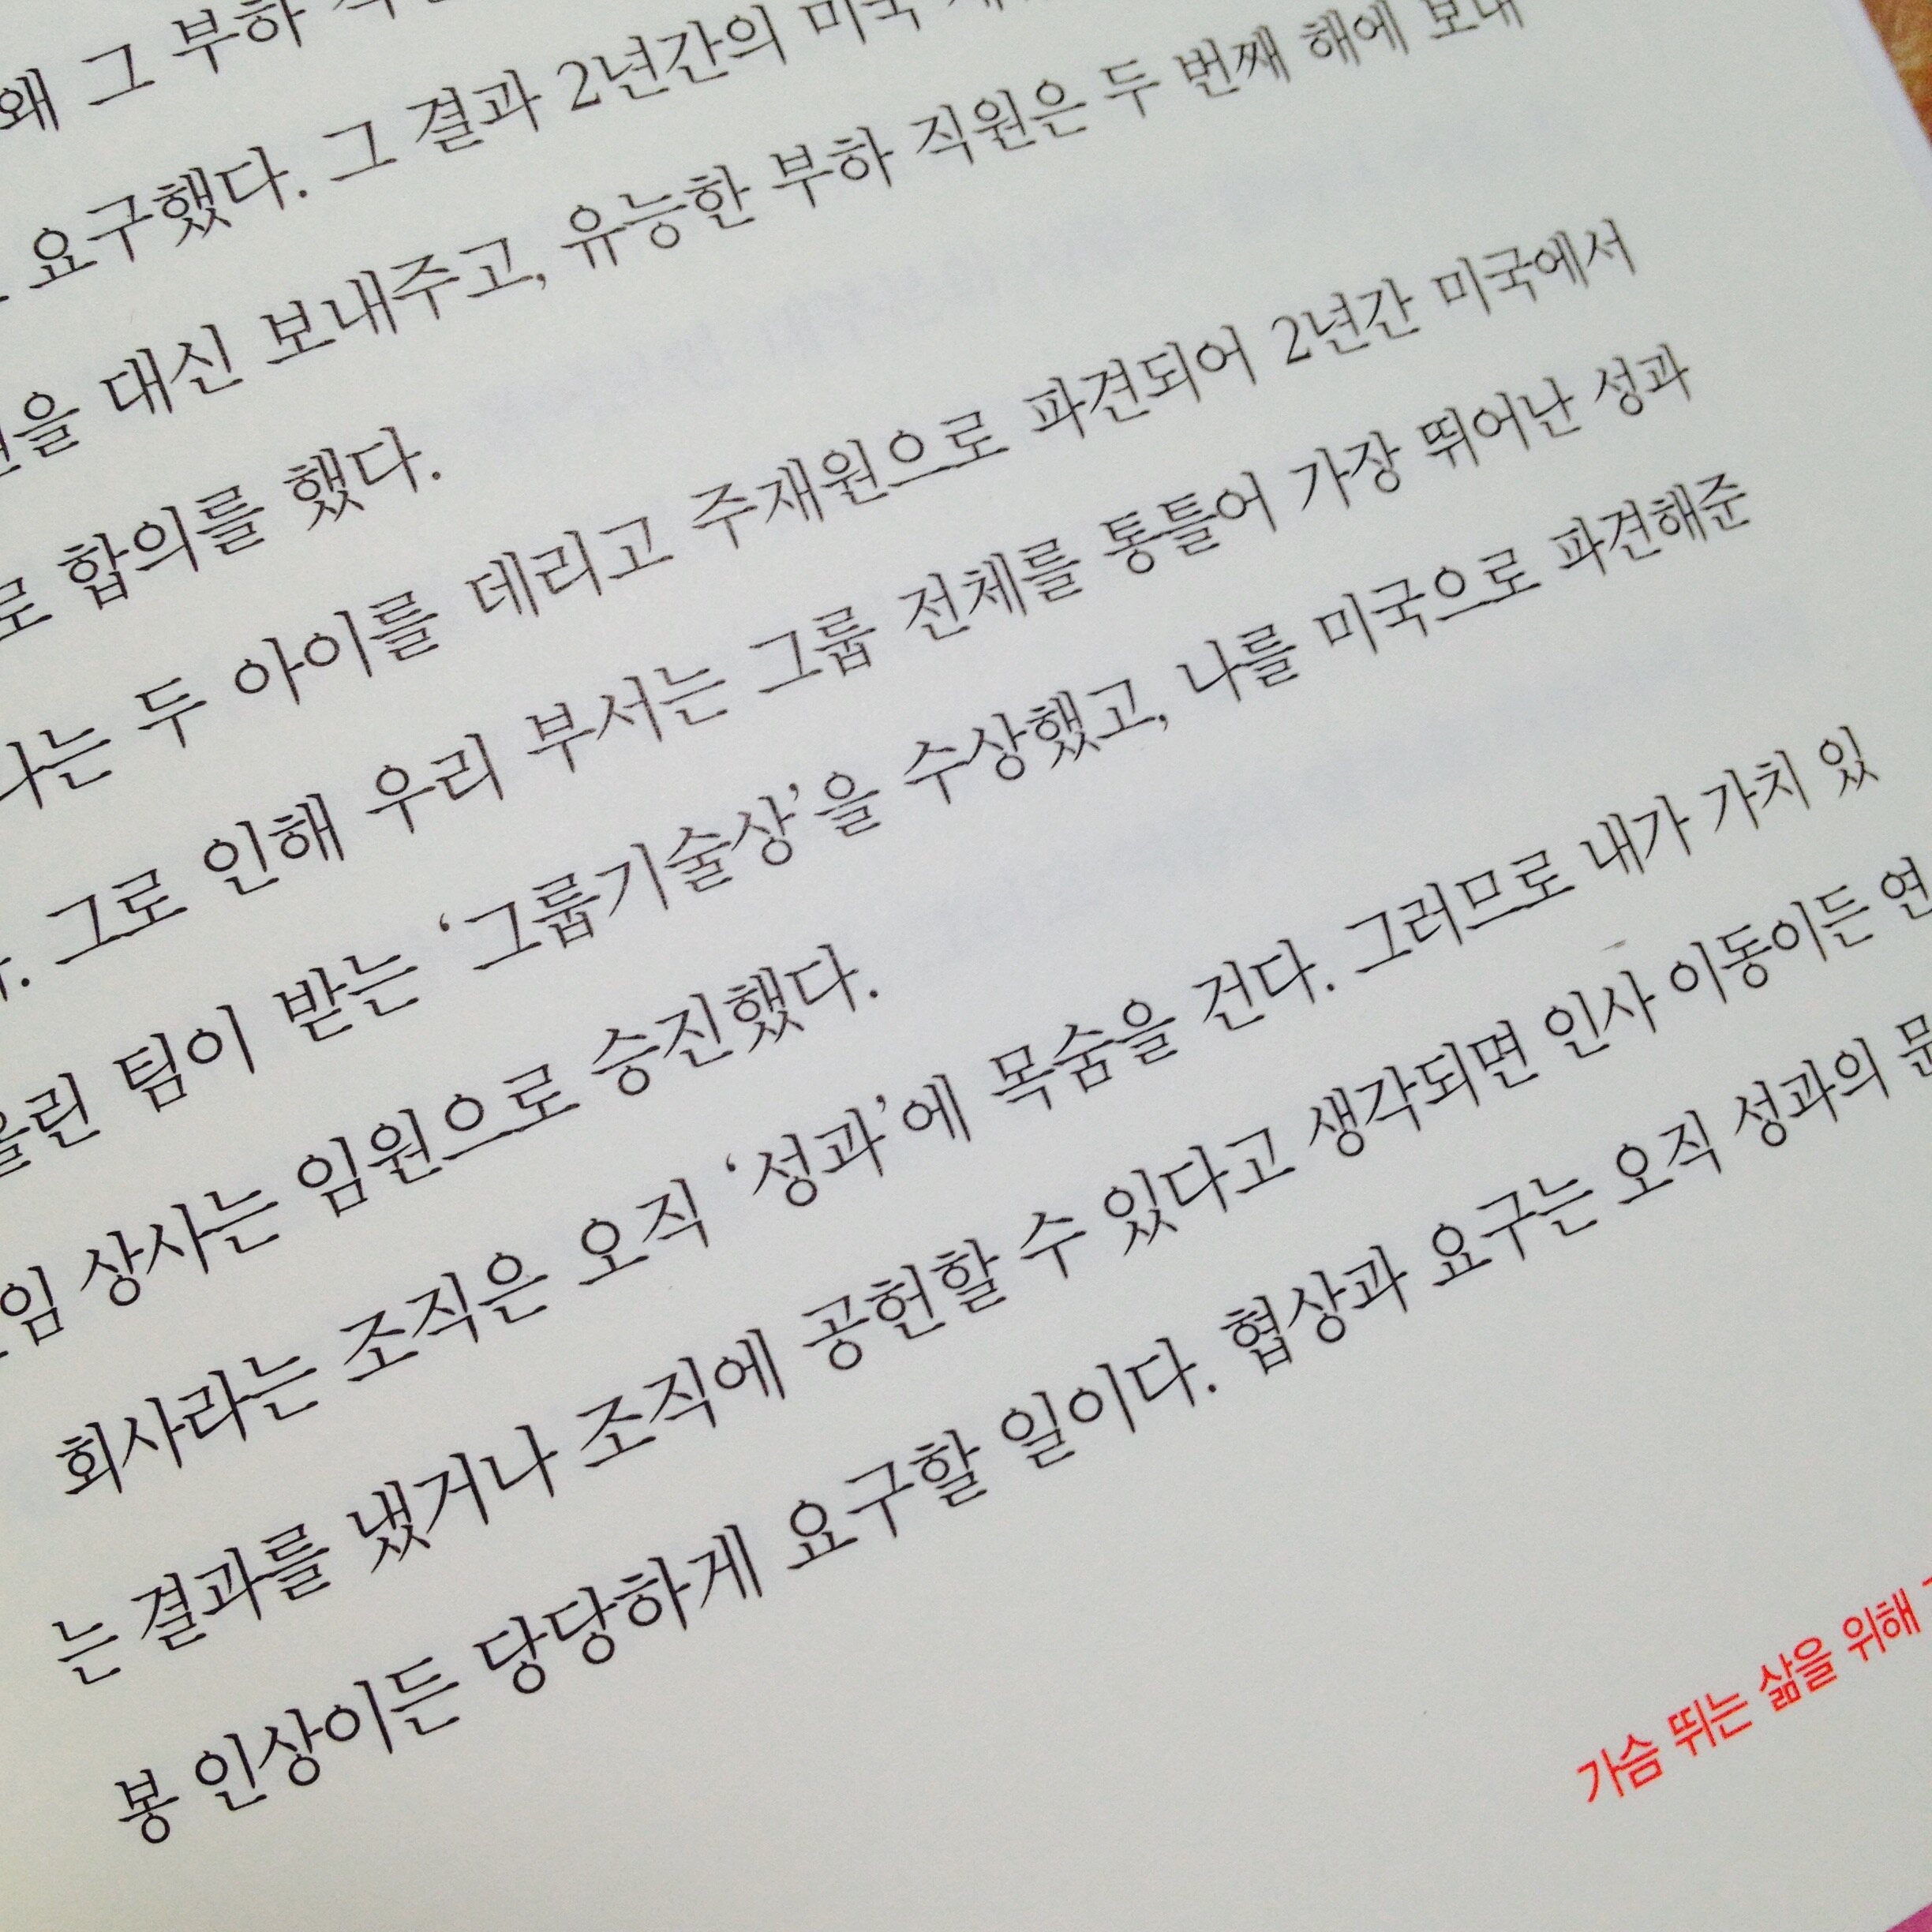 왜 그 부하
요구했다. 그 결과 2년간의 미국
을 대신 보내주고, 유능한 부하 직원은 두 번째 해에 보내
로 합의를 했다.
나는 두 아이를 데리고 주재원으로 파견되어 2년간 미국에서
그로 인해 우리 부서는 그룹 전체를 통틀어 가장 뛰어난 성과
올린 팀이 받는 ‘그룹기술상’을 수상했고, 나를 미국으로 파견해준
임 상사는 임원으로 승진했다.
회사라는 조직은 오직 ‘성과’에 목숨을 건다. 그러므로 내가 가치 있
는 결과를 냈거나 조직에 공헌할 수 있다고 생각되면 인사 이동이든 연
봉 인상이든 당당하게 요구할 일이다. 협상과 요구는 오직 성과의
가슴 뛰는 삶을 위해